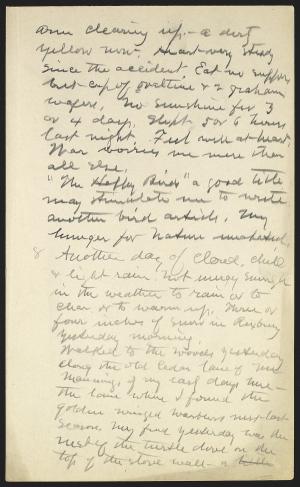 arm clearing up, – a dirty
yellow now. Heart very steady
since the accident. Eat no supper,
but cup of ovaltine & 2 graham
wafers. No sunshine for 3
or 4 days. Slept 5 or 6 hours
last night. Feel well at heart.
War worries me more than
all else.
"The Happy Birds" a good title
may stimulate me to write
another bird article. My
hunger for Nature unabated.
8 Another day of cloud, chill
& light rain. Not energy enough
in the weather to rain or to
clear or to warm up. Three or
four inches of snow in Roxbury
yesterday morning.
Walked to the woods yesterday
along the old cedar lane of
Manning, of my early days here –
the lane where I found the
golden winged warblers nest last
season. My find yesterday was the
nest of the turtle dove on the
top of the stone wall – a